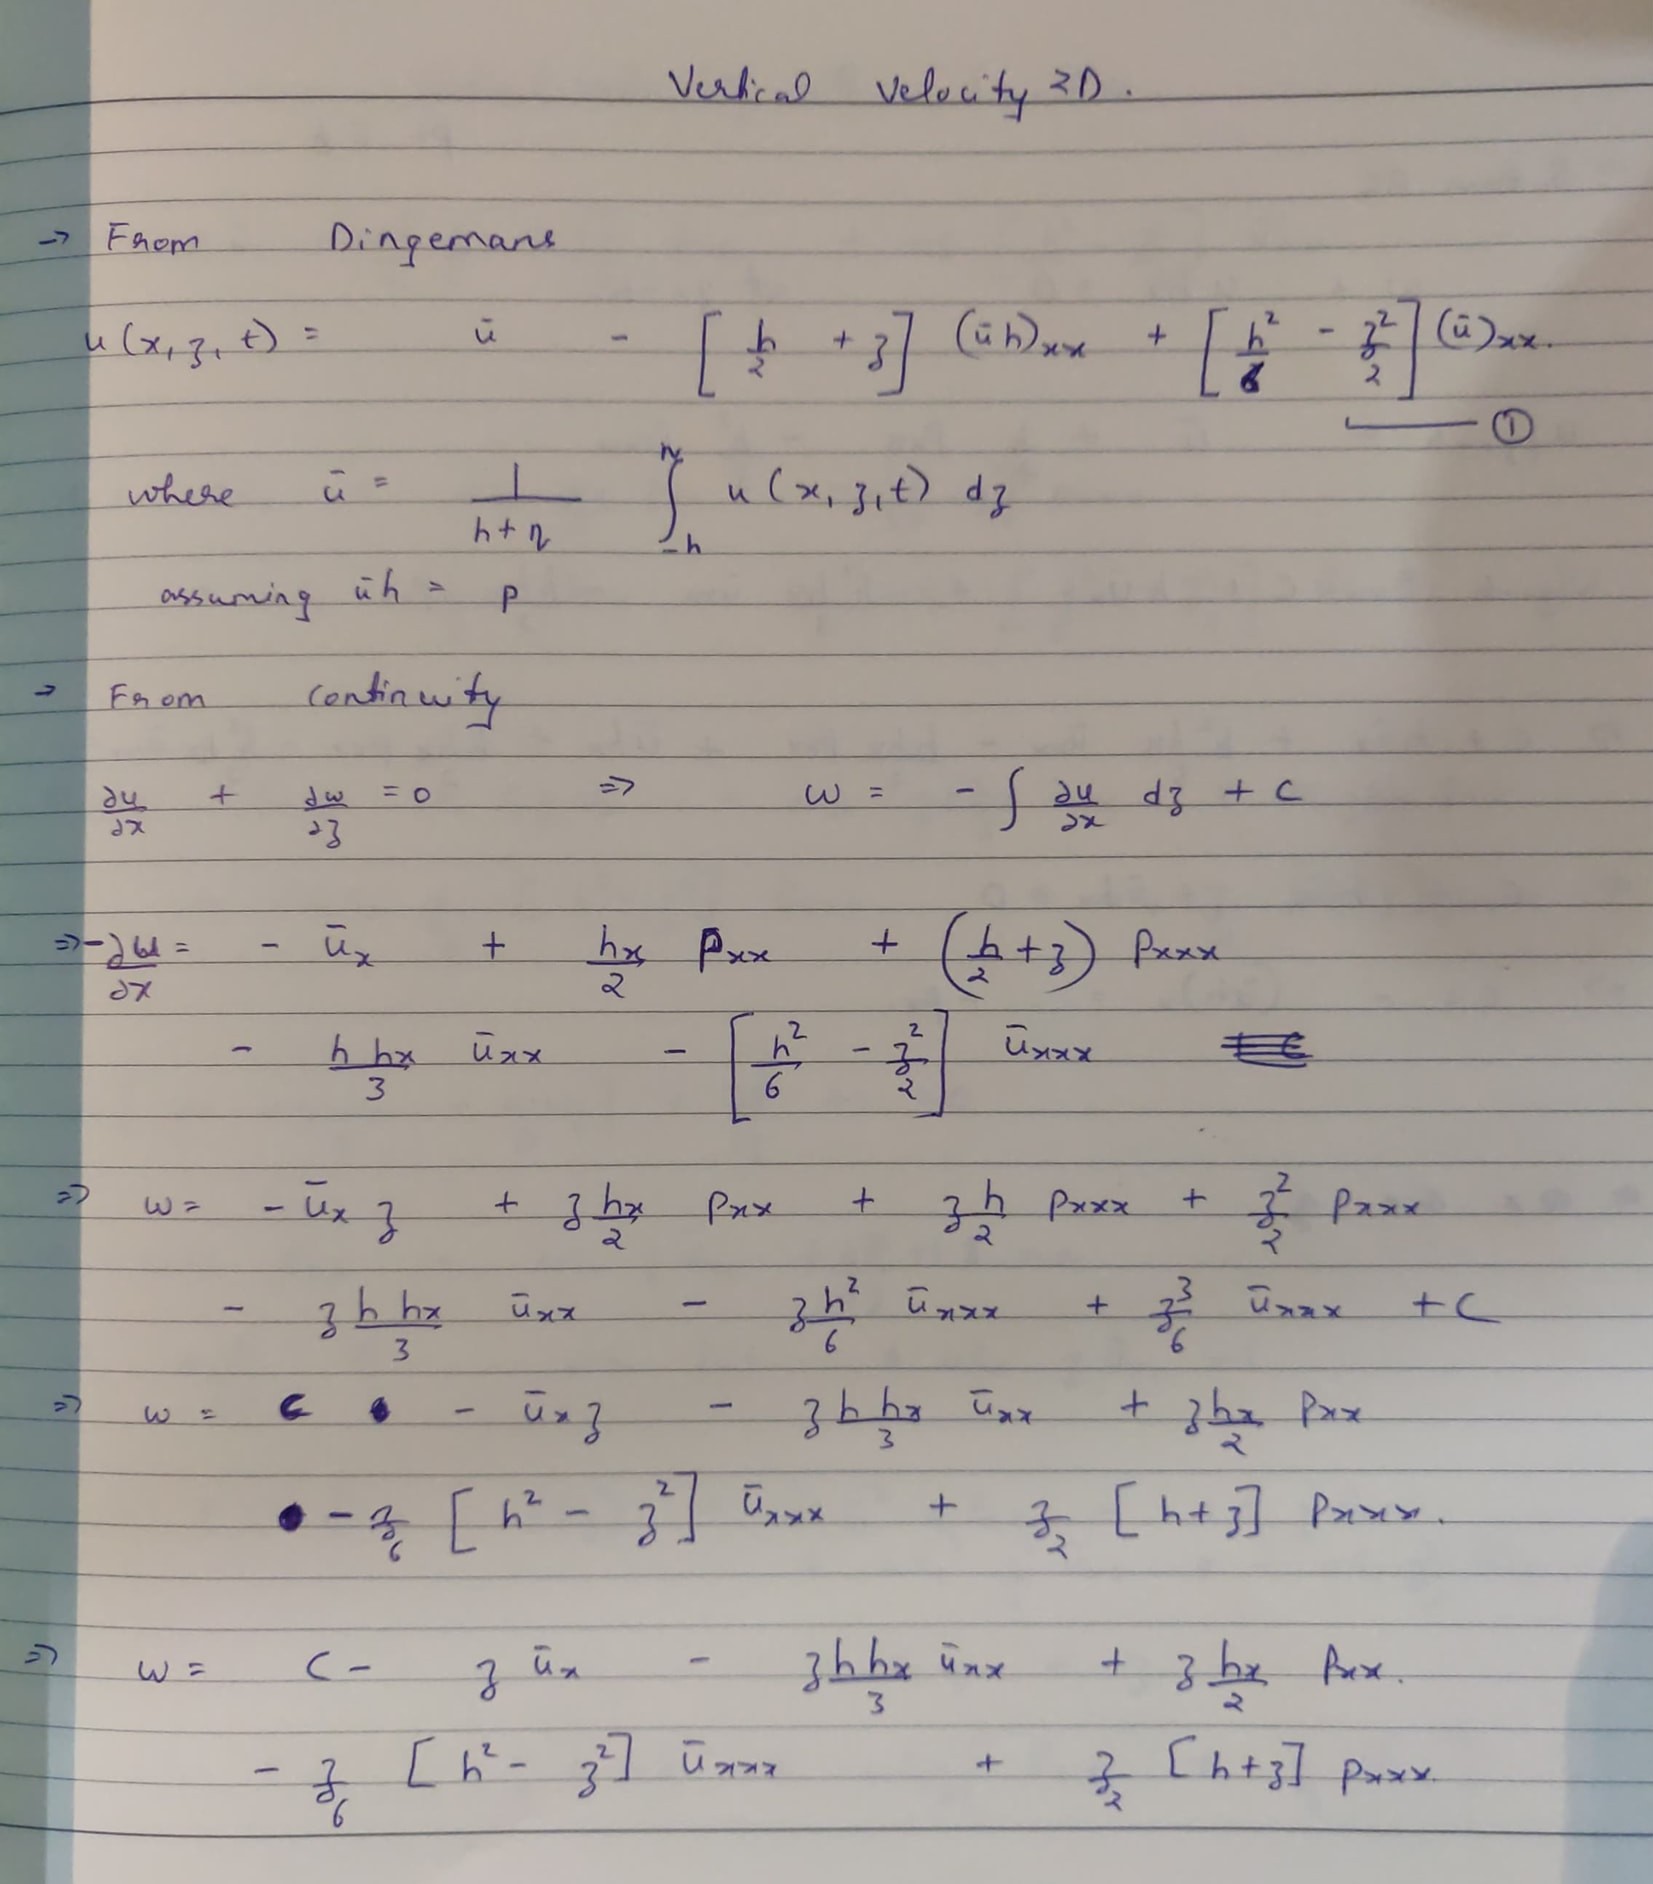 Vertical Velocity 2D.
→ From Dingemans
u(x, z, t) = ū - [h/2 + z] (ūh)xx + [h²/6 - z²/2] (ū)xx.
— ①
where ū = 1/(h+η) ∫_{-h}^{η} u(x, z, t) dz
assuming ūh = p
→ From Continuity
∂u/∂x + ∂w/∂z = 0 ⇒ w = - ∫ ∂u/∂x dz + C
⇒ -∂u/∂x = - ūx + hx/2 Pxx + (h/2 + z) Pxxx
- h hx/3 ūxx - [h²/6 - z²/2] ūxxx
⇒ w = - ūx z + z hx/2 Pxx + z h/2 Pxxx + z²/2 Pxxx
- z h hx/3 ūxx - z h²/6 ūxxx + z³/6 ūxxx + C
⇒ w = C - ūx z - z h hx/3 ūxx + z hx/2 Pxx
- z/6 [h² - z²] ūxxx + z/2 [h+z] Pxxx.
⇒ w = C - z ūx - z h hx/3 ūxx + z hx/2 Pxx.
- z/6 [h² - z²] ūxxx + z/2 [h+z] Pxxx.